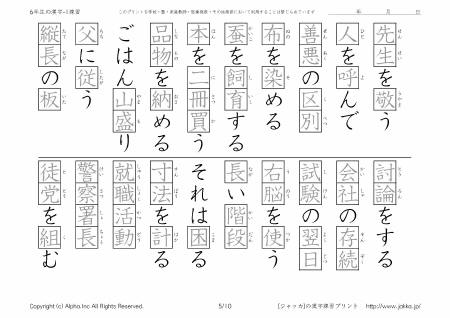 6年生の漢字-1練習
このプリントを学校・塾・家庭教師・医療機関・その他施設において利用することは禁じられています
年　月　日
先生を敬う
人を呼んで
善悪の区別
布を染める
蚕を飼育する
本を二冊買う
品物を納める
ごはん山盛り
父に従う
縦長の板
討論をする
会社の存続
試験の翌日
右脳を使う
長い階段
それは困る
寸法を計る
就職活動
警察署長
徒党を組む
Copyright (c) Alpha.Inc All Rights Reserved.
5/10
[ジャッカ]の漢字練習プリント　http://www.jakka.jp/